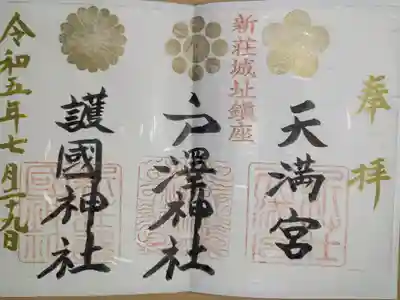 奉拝
天満宮
新荘城址鎮座
戸澤神社
護國神社
令和五年七月二九日